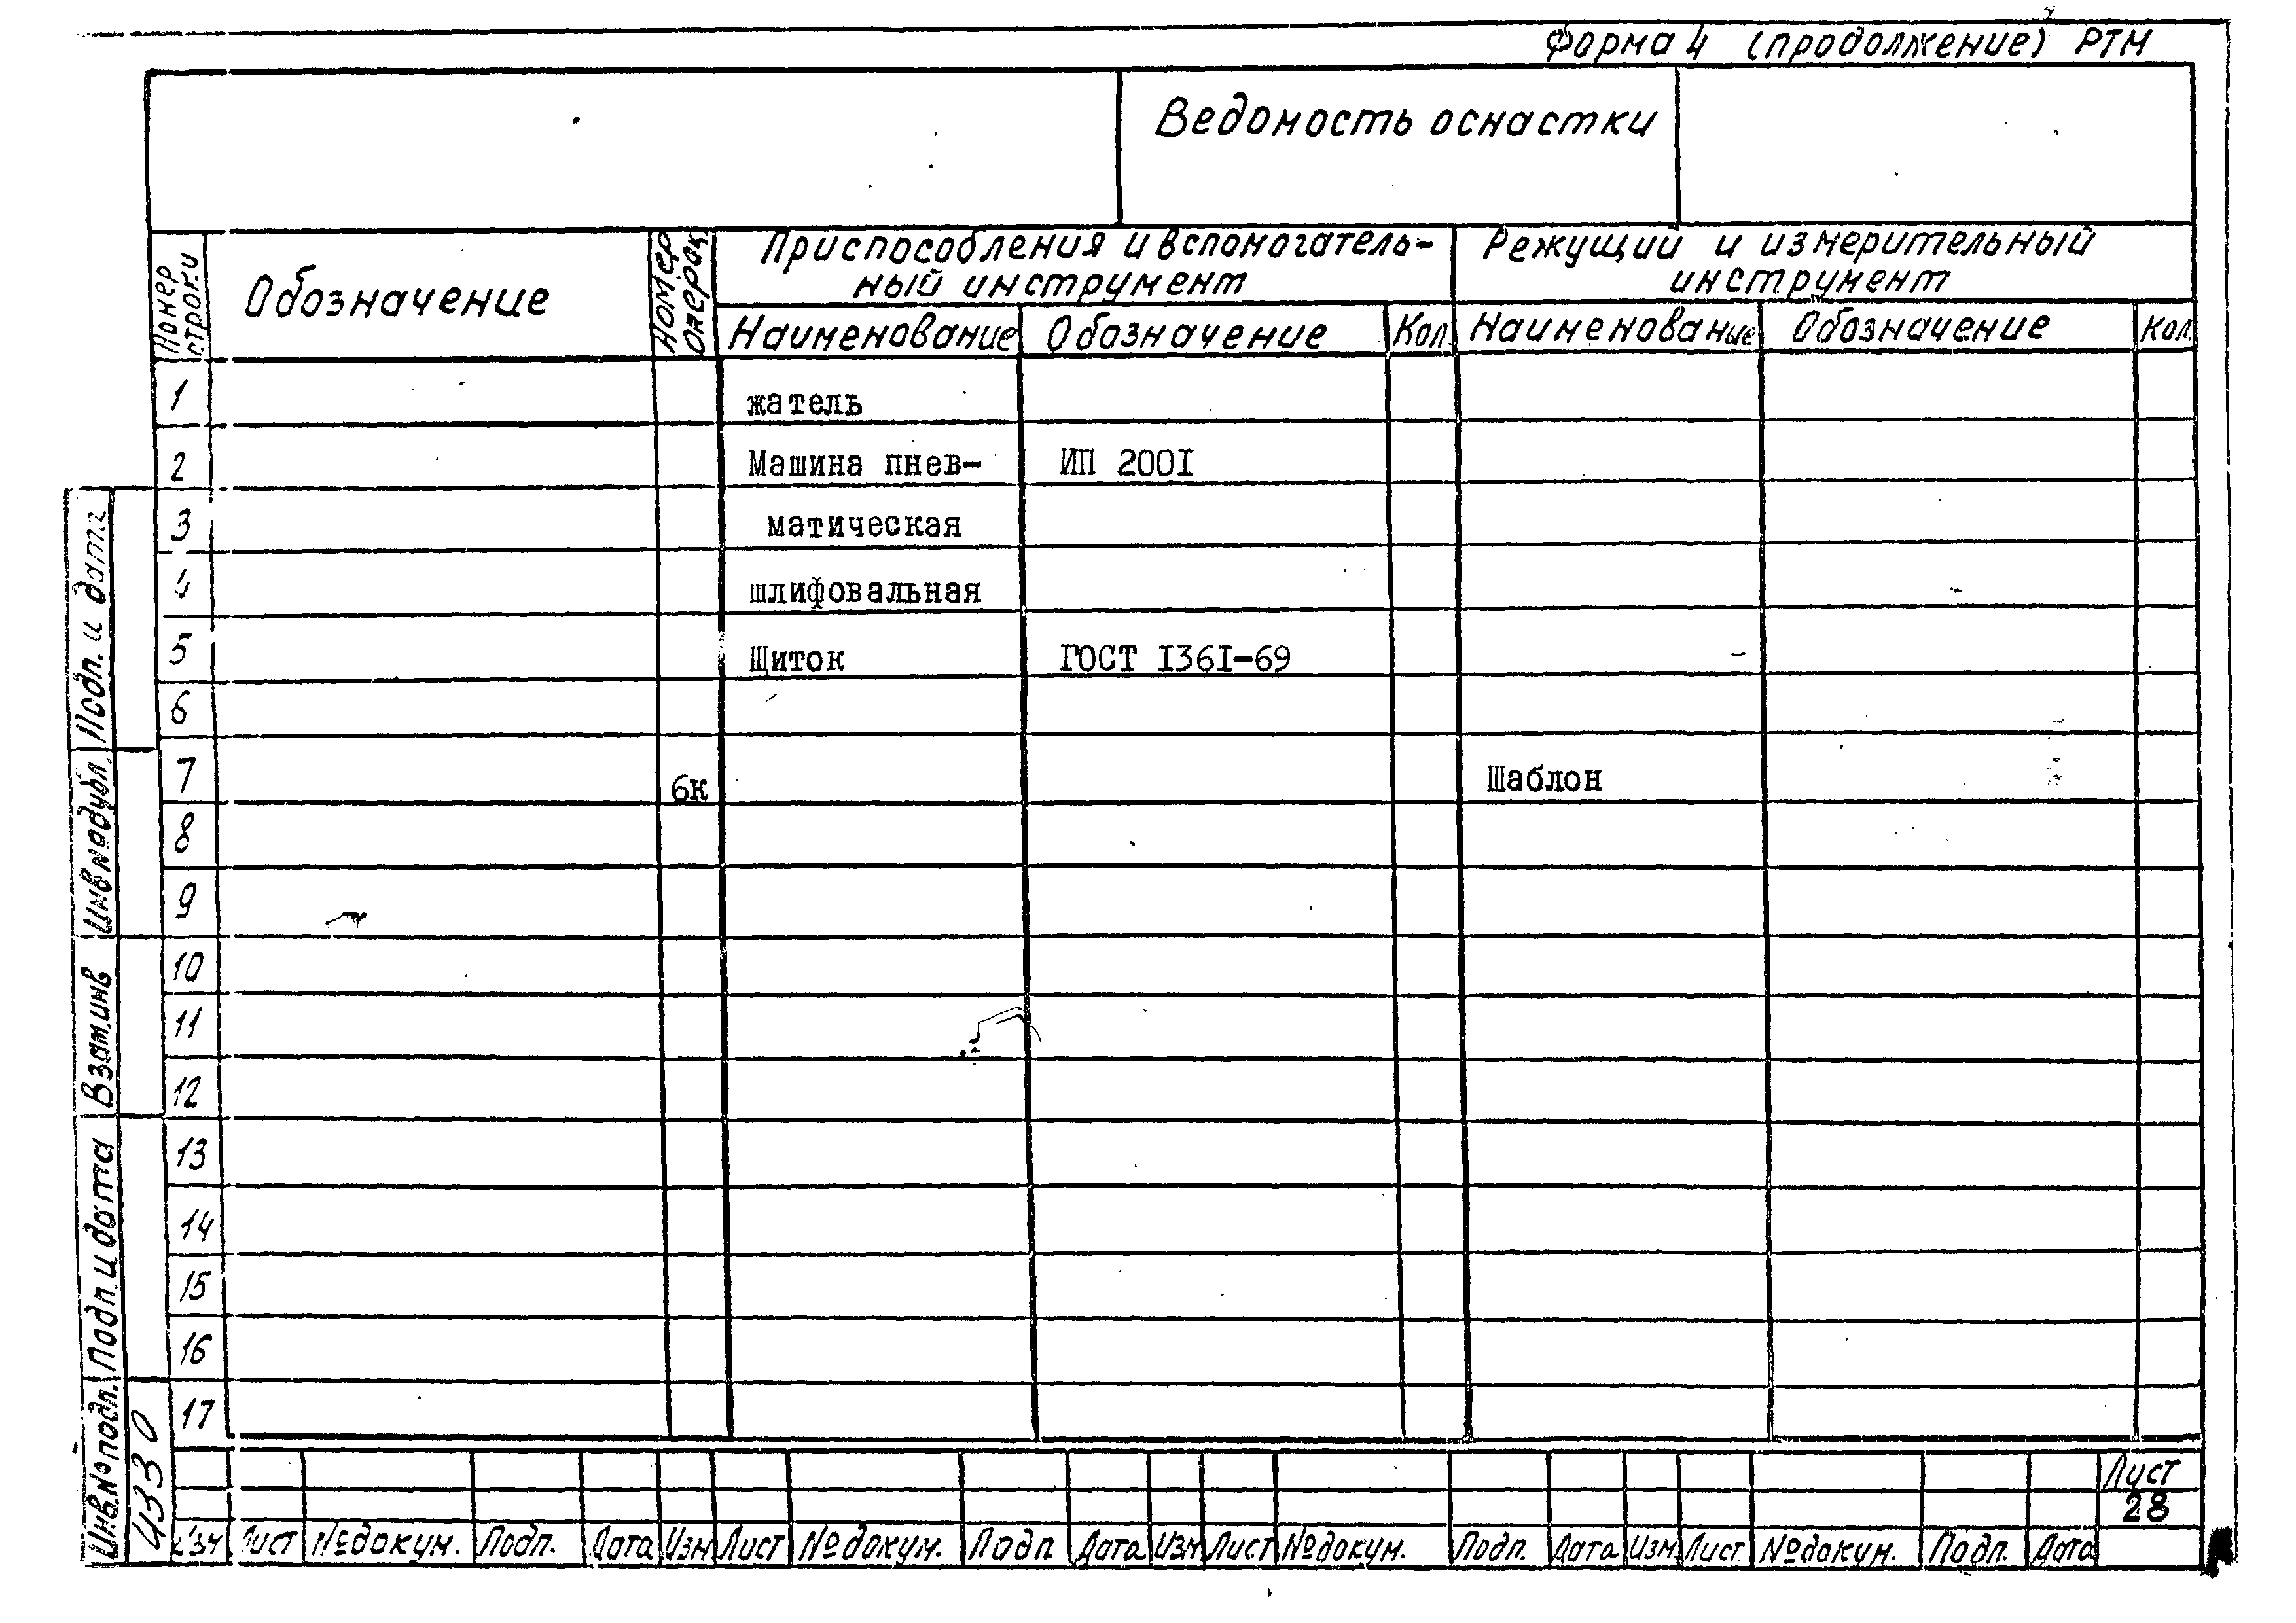 Форма 4 (продолжение) РТМ
Ведомость оснастки
Номер строки
Обозначение
Номер операц.
Приспособления и вспомогатель-
ный инструмент
Режущий и измерительный
инструмент
Наименование Обозначение Кол. Наименование Обозначение Кол.
1 жатель
2 Машина пнев- ИП 200I
3 матическая
4 шлифовальная
5 Щиток ГОСТ I36I-69
6
7 6к Шаблон
8
9
10
11
12
13
14
15
16
17
Подп. и дата
Инв № дубл.
Взам. инв
Подп. и дата
Инв. № подп.
Лист
28
Изм Лист № докум. Подп. Дата Изм Лист № докум. Подп Дата Изм Лист № докум. Подп. Дата Изм. Лист. № докум. Подп. Дата